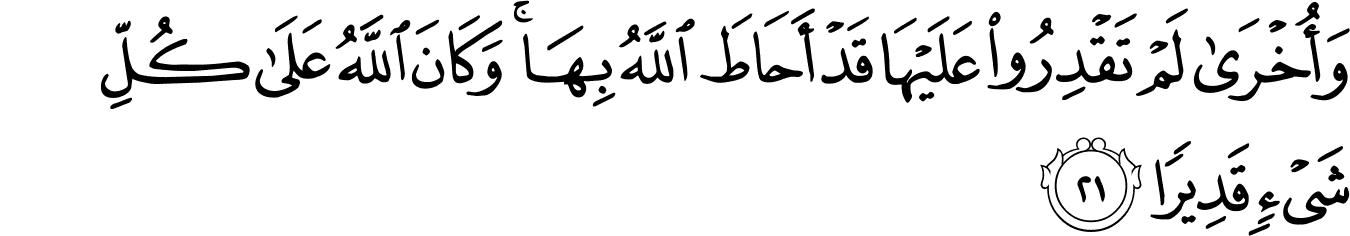 وَأُخْرَىٰ لَمْ تَقْدِرُوا۟ عَلَيْهَا قَدْ أَحَاطَ ٱللَّهُ بِهَا ۚ وَكَانَ ٱللَّهُ عَلَىٰ كُلِّ
شَىْءٍ قَدِيرًا ٢١